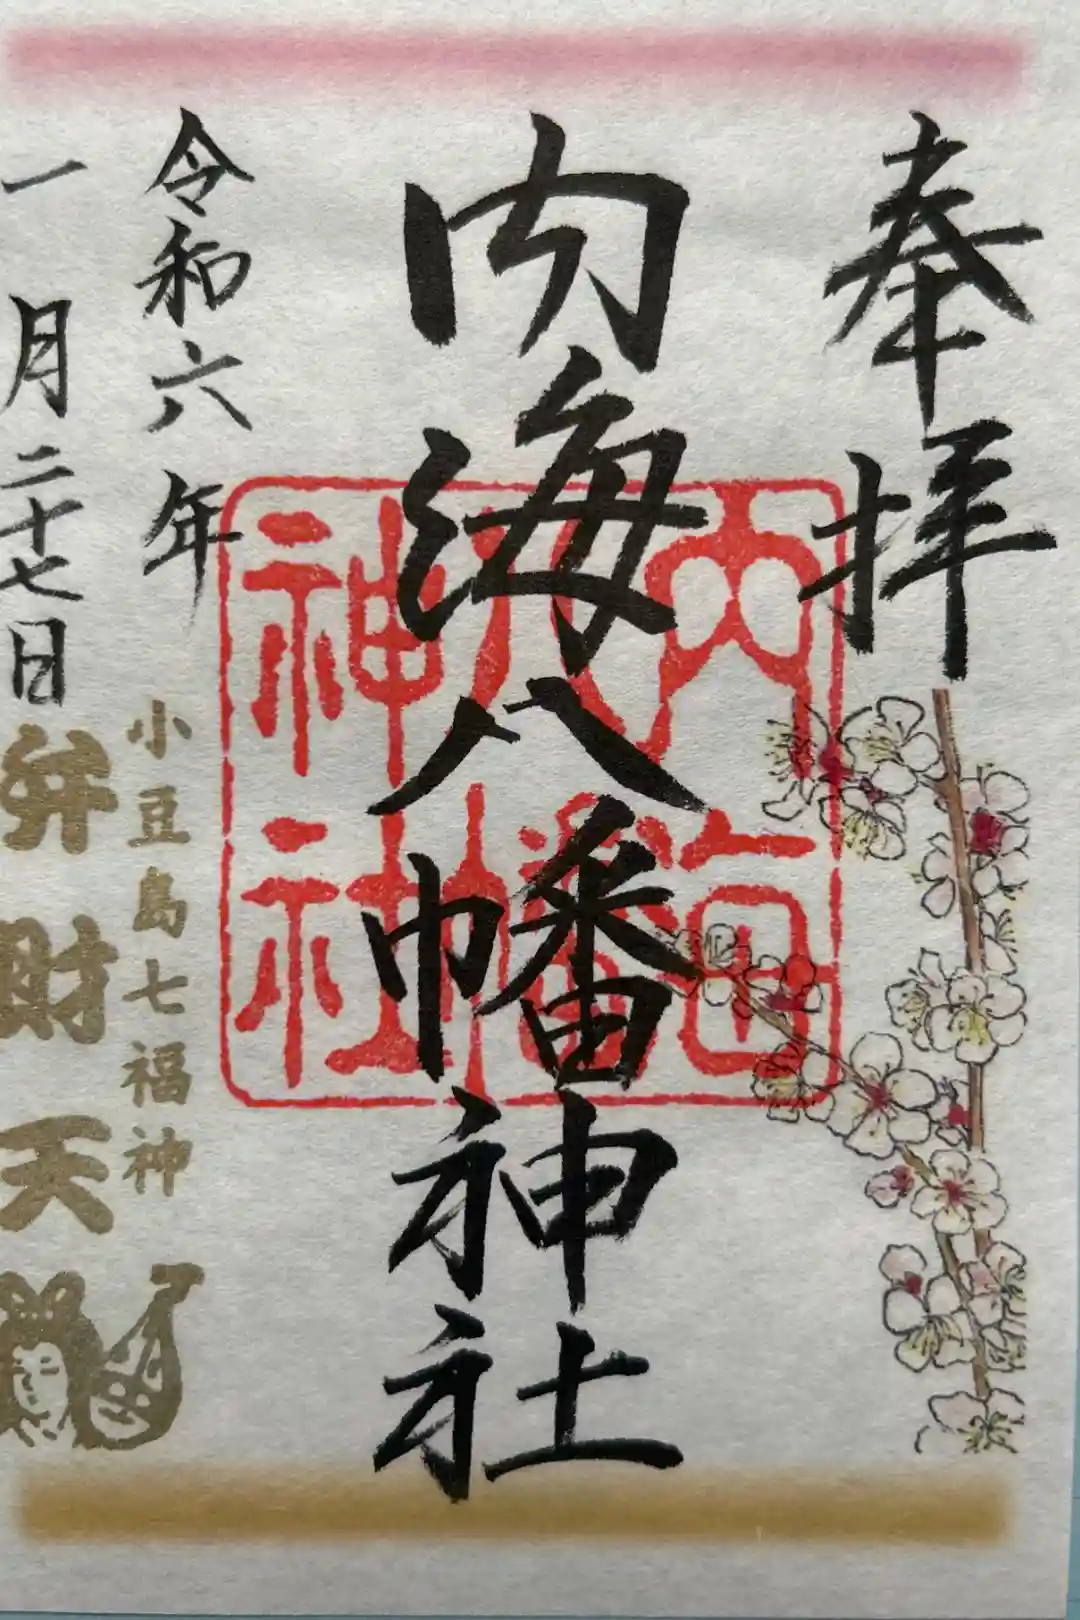 奉拝
内海八幡神社
内海
八幡
神社
令和六年
一月二十七日
小豆島七福神
弁財天